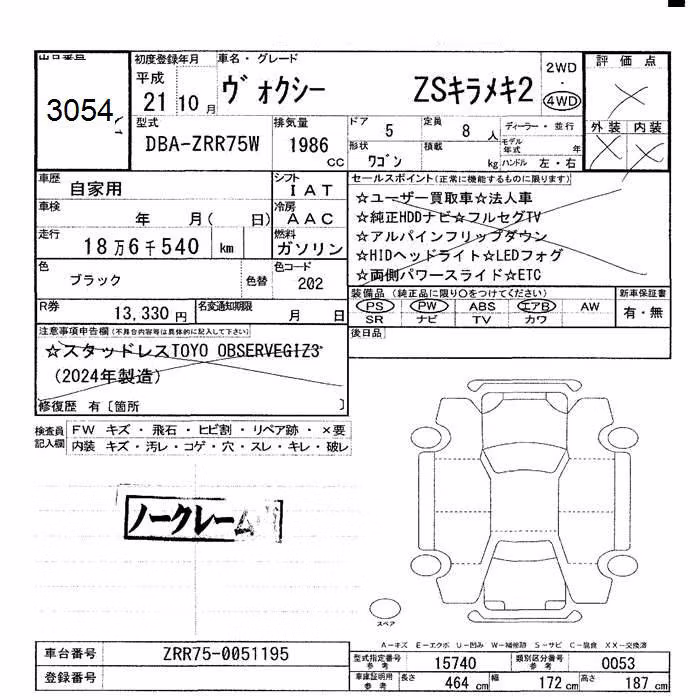 出品番号
3054
初度登録年月
平成
21 10 月
車名・グレード
ヴォクシー ZSキラメキ2
2WD
・
4WD
評価点
外装 内装
型式
DBA-ZRR75W
排気量
1986
CC
ドア
5
定員
8 人
ディーラー・並行
形状
ワゴン
積載
kg
モデル
年式 年
ハンドル 左・右
車歴
自家用
シフト
IAT
車検
年 月( 日)
冷房
AAC
走行
18万6千540 km
燃料
ガソリン
色
ブラック
色替
色コード
202
R券
13,330 円
名変通知期限
月 日
セールスポイント(正常に機能するものに限ります)
☆ユーザー買取車☆法人車
☆純正HDDナビ☆フルセグTV
☆アルパインフリップダウン
☆HIDヘッドライト☆LEDフォグ
☆両側パワースライド☆ETC
装備品(純正品に限り○をつけてください)
PS PW ABS エアB AW
SR ナビ TV カワ
新車保証書
有・無
後日品
注意事項申告欄(不具合内容等は具体的に記入して下さい)
☆スタッドレスTOYO OBSERVEGIZ3
(2024年製造)
修復歴 有〔箇所 〕
検査員
記入欄
FW キズ・飛石・ヒビ割・リペア跡・×要
内装 キズ・汚レ・コゲ・穴・スレ・キレ・破レ
ノークレーム
スペア
A-キズ E-エクボ U-凹み W-補修跡 S-サビ C-腐食 XX-交換済
車台番号
ZRR75-0051195
登録番号
型式指定番号
参考
15740
類別区分番号
参考
0053
車庫証明用
参考
長さ 464 cm 幅 172 cm 高さ 187 cm